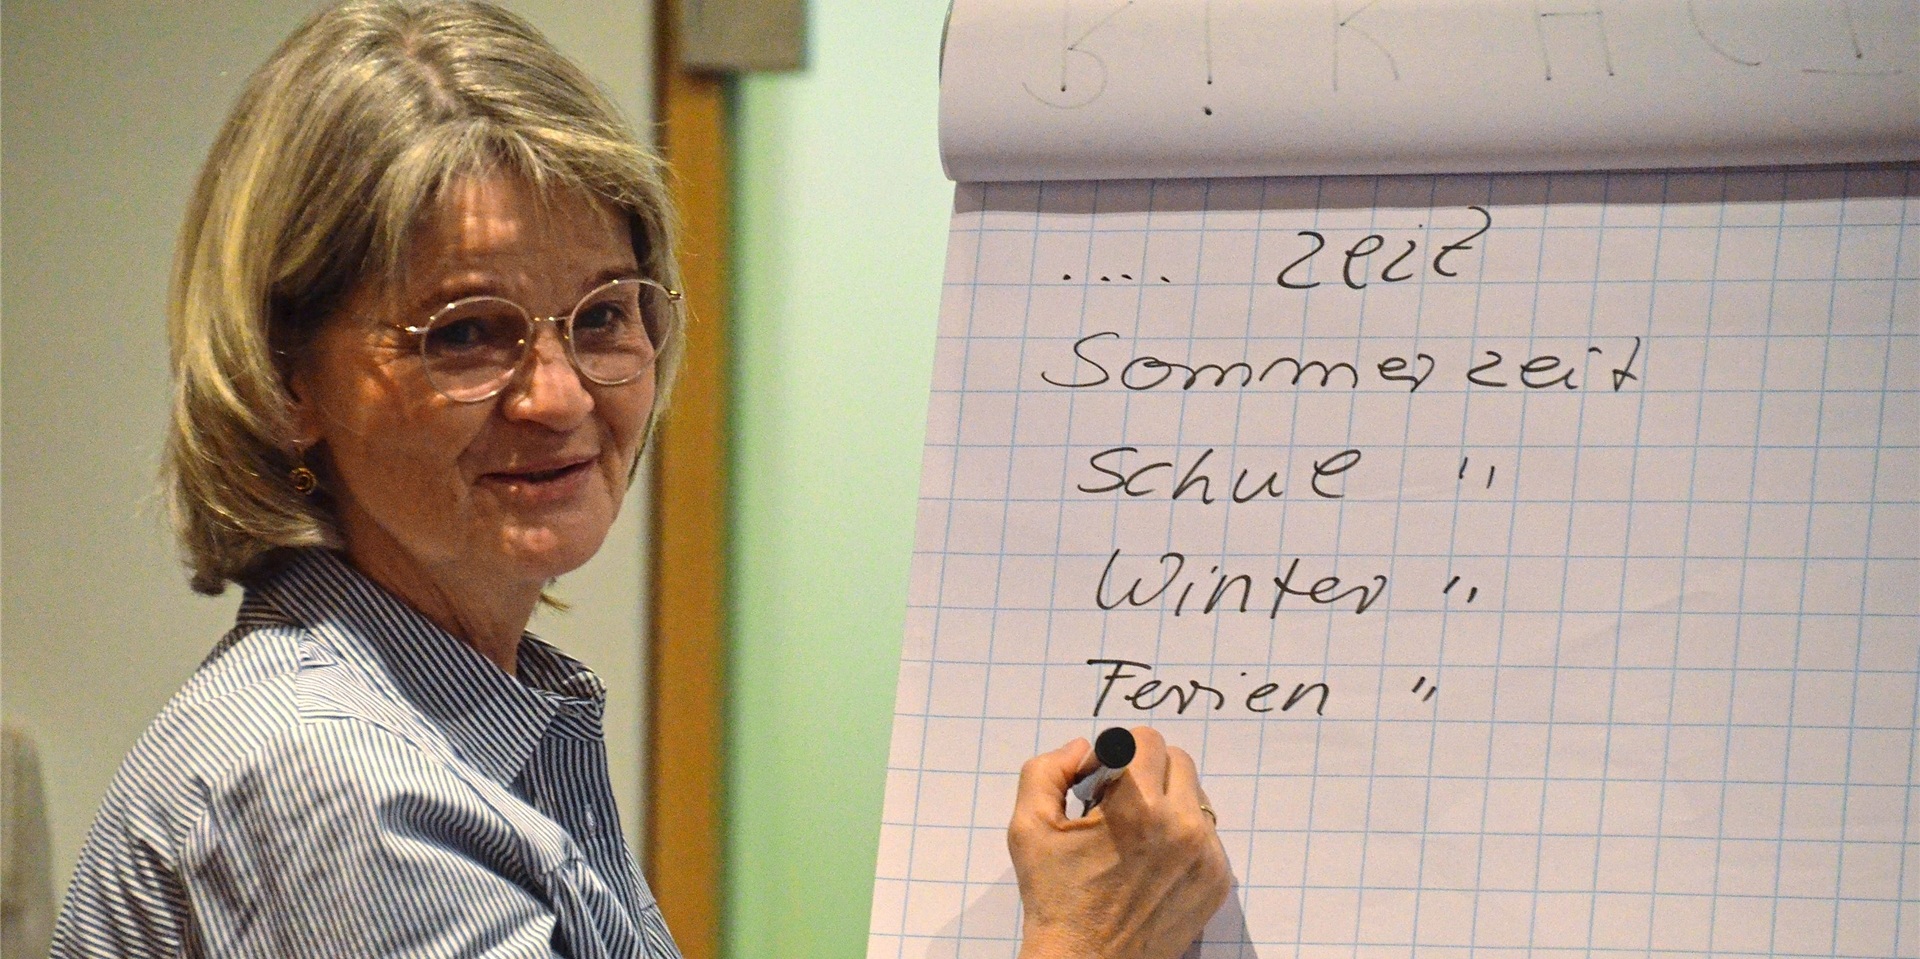 ..... zeit
Sommerzeit
Schul "
Winter "
Ferien "